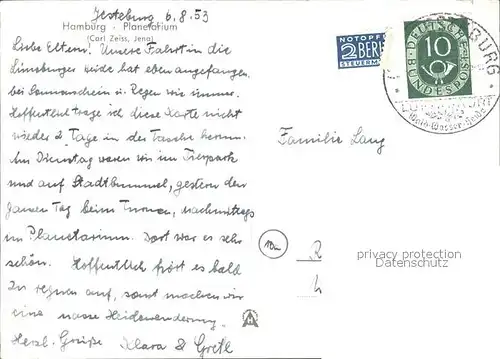 Jesteburg 6.8.53
Hamburg - Planetarium
(Carl Zeiss, Jena)
Liebe Eltern! Unsere Fahrt in die
Lüneburger Heide hat eben angefangen,
bei Sonnenschein u. Regen wie immer.
Hoffentlich trage ich diese Karte nicht
wieder 2 Tage in der Tasche herum.
Am Dienstag waren wir im Tierpark
und auf Stadtbummel, gestern den
ganzen Tag beim Turnen, nachmittags
im Planetarium. Dort war es sehr
schön. Hoffentlich hört es bald
zu regnen auf, sonst machen wir
eine nasse Heidewanderung.
Herzl. Grüße Klara & Gretl
NOTOPFER
2 BERLIN
STEUERMARKE
DEUTSCHE
BUNDESPOST
10
BURG
Familie Lang
privacy protection
Datenschutz